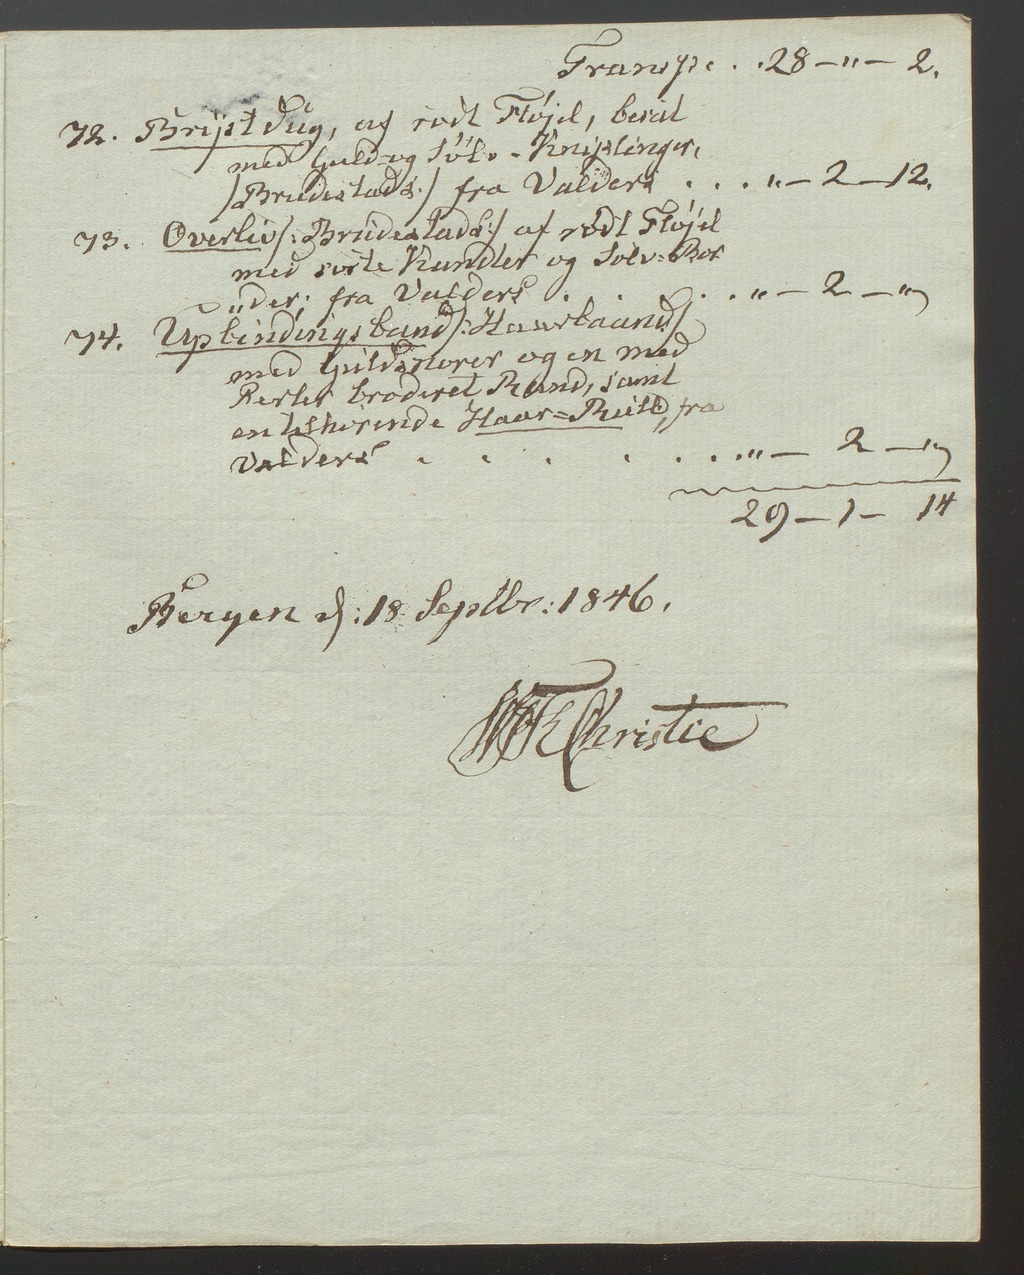 Transp: . . 28 – " – 2.
72. Brystdug, af rødt Fløjel, besat
med Guld og Sølv-Kniplinger,
/:Brudestads:/ fra Valders . . . " – 2 – 12.
73. Overliv /:Brudestads:/ af rødt Fløjel
med sorte Kandter og Sølv-Bor
der; fra Valders . . . . . " – 2 – "
74. Upbindingsband /:Haarbaand:/
med Guldsnorer og en med
Perler broderet Rand, samt
en tilhørende Haar-Rull, fra
Valders . . . . . . . " – 2 – "
29 – 1 – 14
Bergen d: 18 Septbr: 1846.
WFKChristie